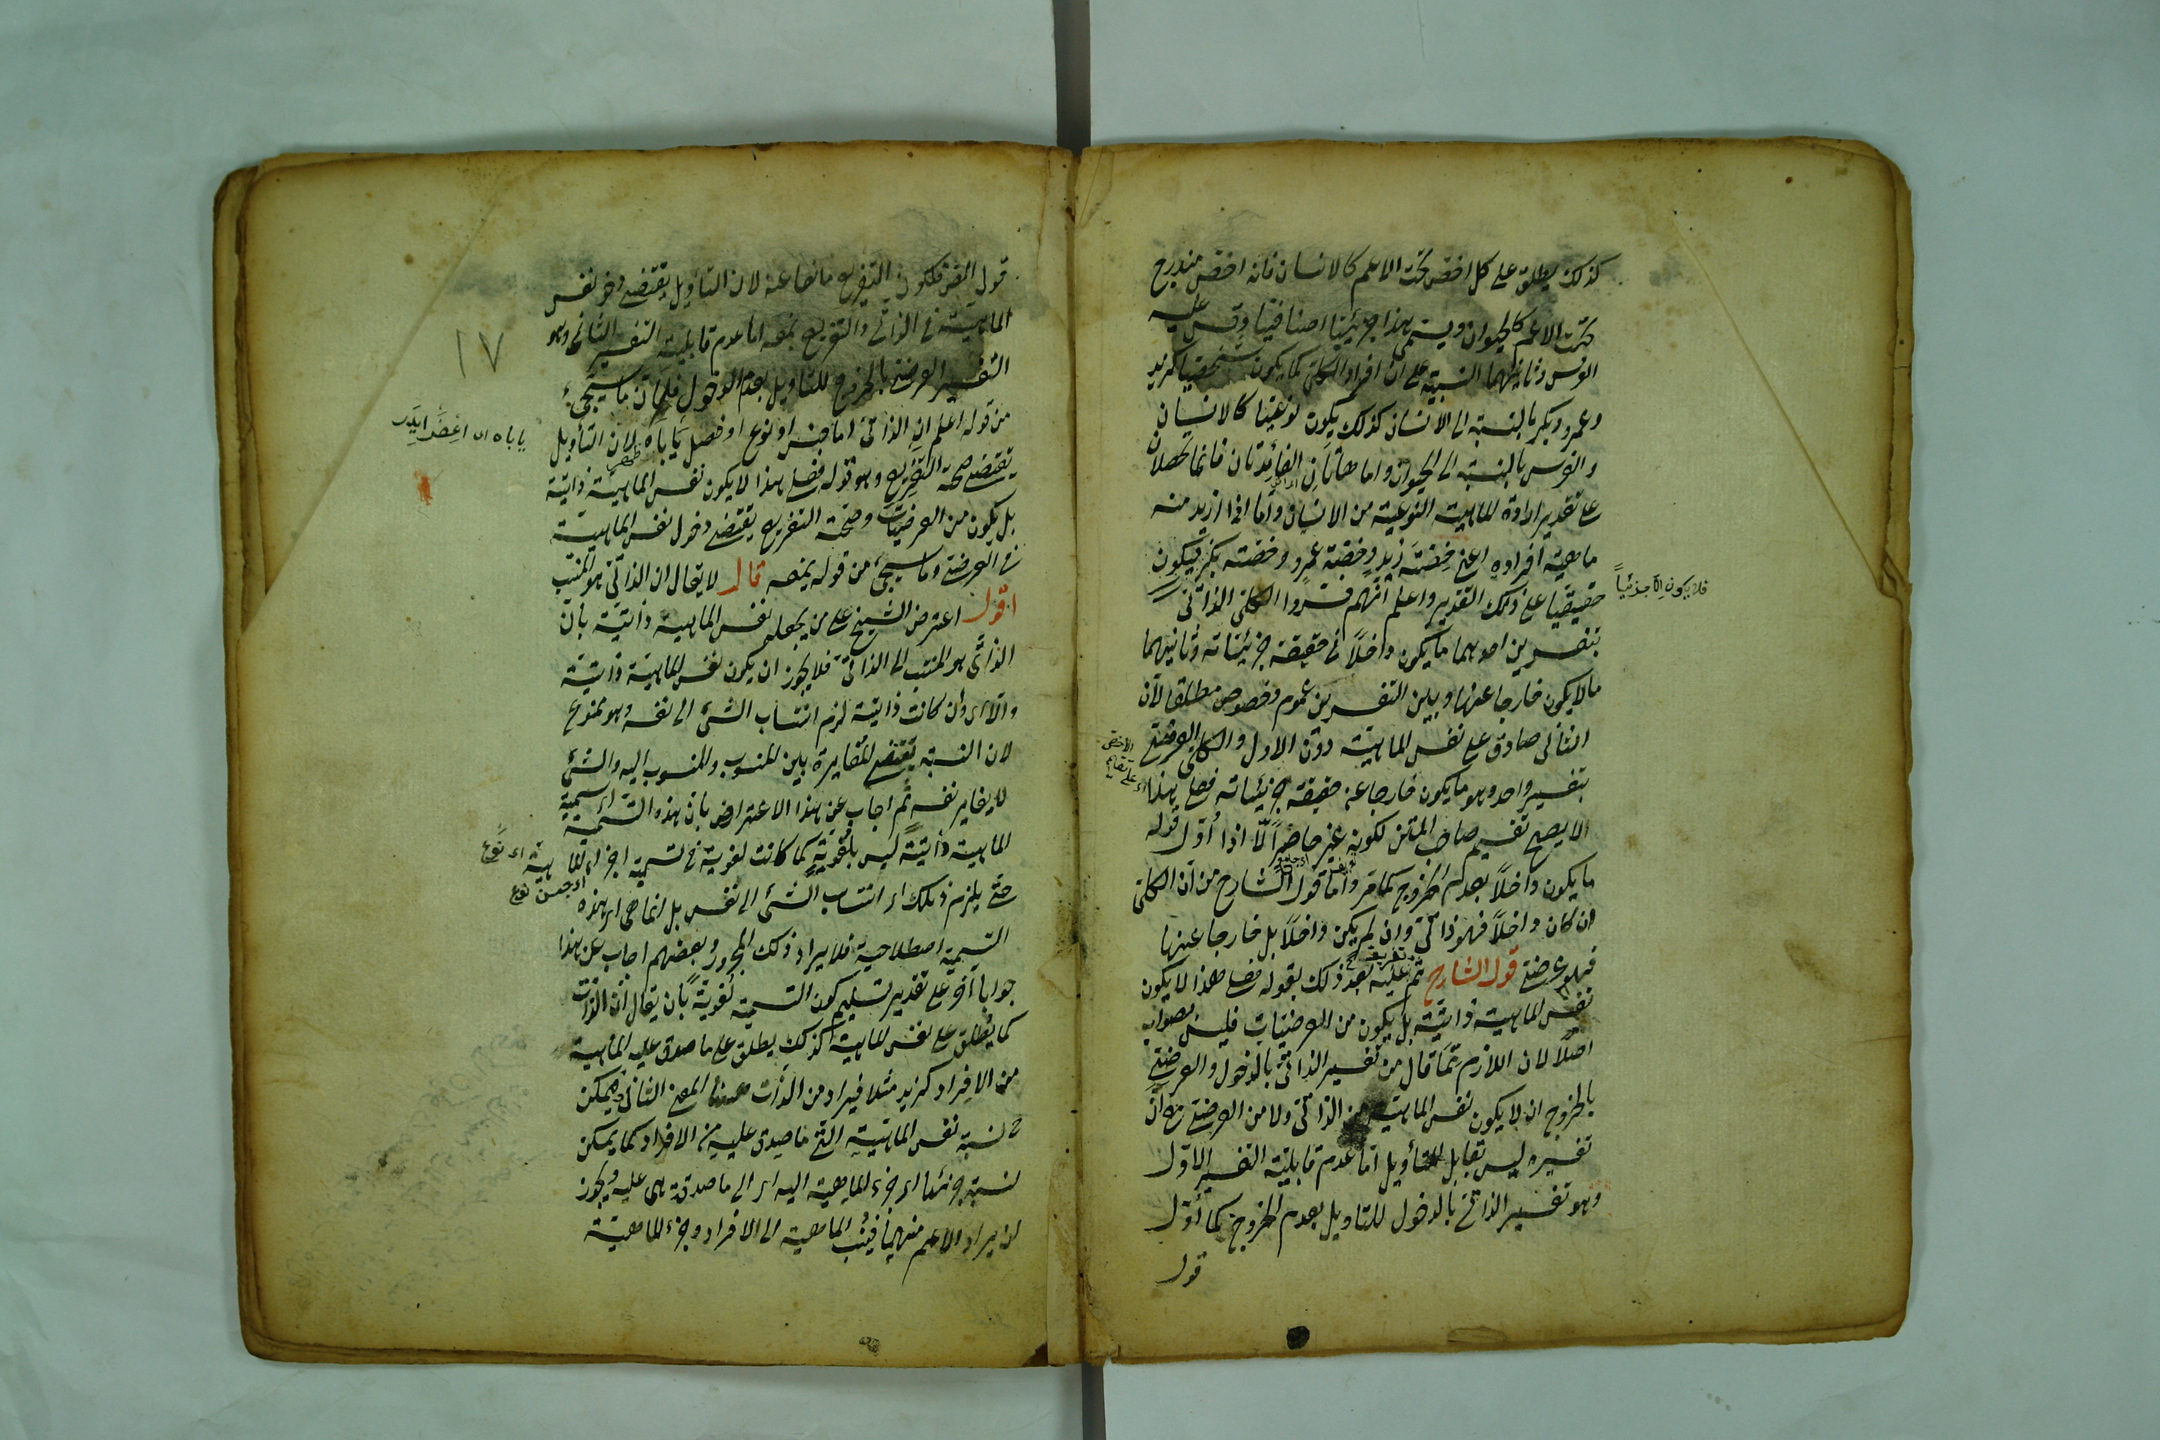 كذلك يطلق على كل اخص تحت الاعم كالانسان فانه اخص مندرج
تحت الاعم كالحيوان ويسمى هذا جزئيا اضافيا وقس عليه
الفرس وثانيهما النسبة على ان افراد الكلى كما يكون شخصيا كزيد
وعمرو وبكر بالنسبة الى الانسان كذلك يكون نوعيا كالانسان
والفرس بالنسبة الى الحيوان واما هاتان الفائدتان فانما تحصلان
على تقدير ارادة الماهية النوعية من الانسان واما اذا اريد منه
ماهية افراده اعنى حصة زيد وحصة عمرو وحصة بكر فيكون
فلا يكون الا جزئياً
حقيقيا على ذلك التقدير واعلم انهم فسروا الكلى الذاتى
بتفسيرين احدهما ما يكون داخلاً فى حقيقة جزئياته وثانيهما
ما لا يكون خارجا عنها وبين التفسيرين عموم وخصوص مطلقا لان
الثانى صادق على نفس الماهية دون الاول والكلى العرضى
بتفسير واحد وهو ما يكون خارجا عن حقيقة جزئياته فعلى هذا
لا يصح تقسيم صاحب المتن لكونه غير حاضراً الّا اذا اُوّل قوله
ما يكون داخلاً بعدم الخروج كما مر واما قول الشارح من ان الكلى
ان كان داخلاً فهو ذاتى وان لم يكن داخلاً بل خارجا عنها
فهو عرضى قول الشارح ثم تفريعه عليه بعد ذلك بقوله فعلى هذا لا يكون
نفس الماهية ذاتية بل يكون من العرضيات فليس بصواب
اصلاً لان اللازم مما قال من تفسير الذاتى بالدخول والعرضى
بالخروج ان لا يكون نفس الماهية من الذاتى ولا من العرضى مع ان
تفسيره ليس بقابل للتأويل اما عدم قابلية التفسير الاول
وهو تفسير الذاتى بالدخول للتاويل بعدم الخروج كما اُوّل
قول
قول المص فلكون التفريع مانعا عنه لان التاويل يقتضى دخول نفس
الماهية فى الذاتى والتفريع يمنعه اما عدم قابلية التفسير الثانى وهو
١٧
التفسير العرضى بالخروج للتاويل بعدم الدخول فلما ان ما سيجئ
من قوله اعلم ان الذاتى اما جنس او نوع او فصل يأباه لان التأويل
يقتضى صحة التفريع وهو قوله فعلى هذا لا يكون نفس الماهية ذاتية
بل يكون من العرضيات وصحة التفريع يقتضى دخول نفس الماهية
فى العرضى وما سيجئ من قوله يمنعه قال لا يقال ان الذاتى هو المنتسب
اقول اعترض الشيخ على من يجعل نفس الماهية ذاتية بان
الذاتى هو المنتسب الى الذات فلا يجوز ان يكون نفس الماهية ذاتية
والا اى وان كانت ذاتية لزم انتساب الشئ الى نفسه وهو ممنوع
لان النسبة يقتضى المغايرة بين المنسوب والمنسوب اليه والشئ
لا يغاير نفسه ثم اجاب عن هذا الاعتراض بان هذه التسمية اى تسمية
الماهية ذاتيةً ليس بلُغويّة كما كانت لغوية فى تسمية اجزاء الماهية
اى جنس نوع
حتى يلزم ذلك اى انتساب الشئ الى نفس بل انما هى اى هذه
التسمية اصطلاحية فلا يراد ذلك المحذور وبعضهم اجاب عن هذا
جوابا آخر على تقدير تسليم كون التسمية لغويةً بان يقال ان الذات
كما يُطلق على نفس الماهية كذلك يطلق على ما صدق عليه الماهية
من الافراد كزيد مثلا فيراد من الذات ههنا المعنى الثانى فيمكن
ح نسبة نفس الماهية التى ما صدق عليه من الافراد كما يمكن
نسبة جزئها اى جزء الماهية اليه اى الى ما صدقت هى عليه ويجوز
ان يراد الاعم منهما فينسب الماهية الى الافراد وجزء الماهية